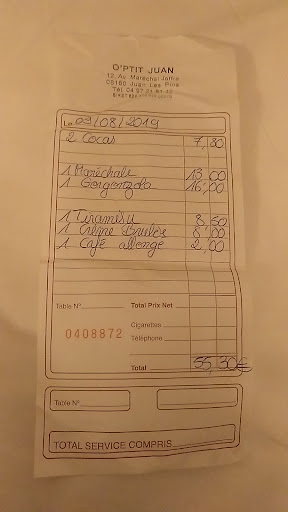 O'PTIT JUAN
12, Av. Maréchal Joffre
06160 Juan Les Pins
Tél. 04 97 21 81 42
Le 09/08/2019
2 Cocas 7,80
1 Maréchale 13,00
1 Gorgonzola 16,00
1 Tiramisu 8,50
1 Crème Brulée 8,00
1 Café allongé 2,00
Table N° Total Prix Net
Cigarettes
0408872
Téléphone
Total 55,30€
Table N°
TOTAL SERVICE COMPRIS